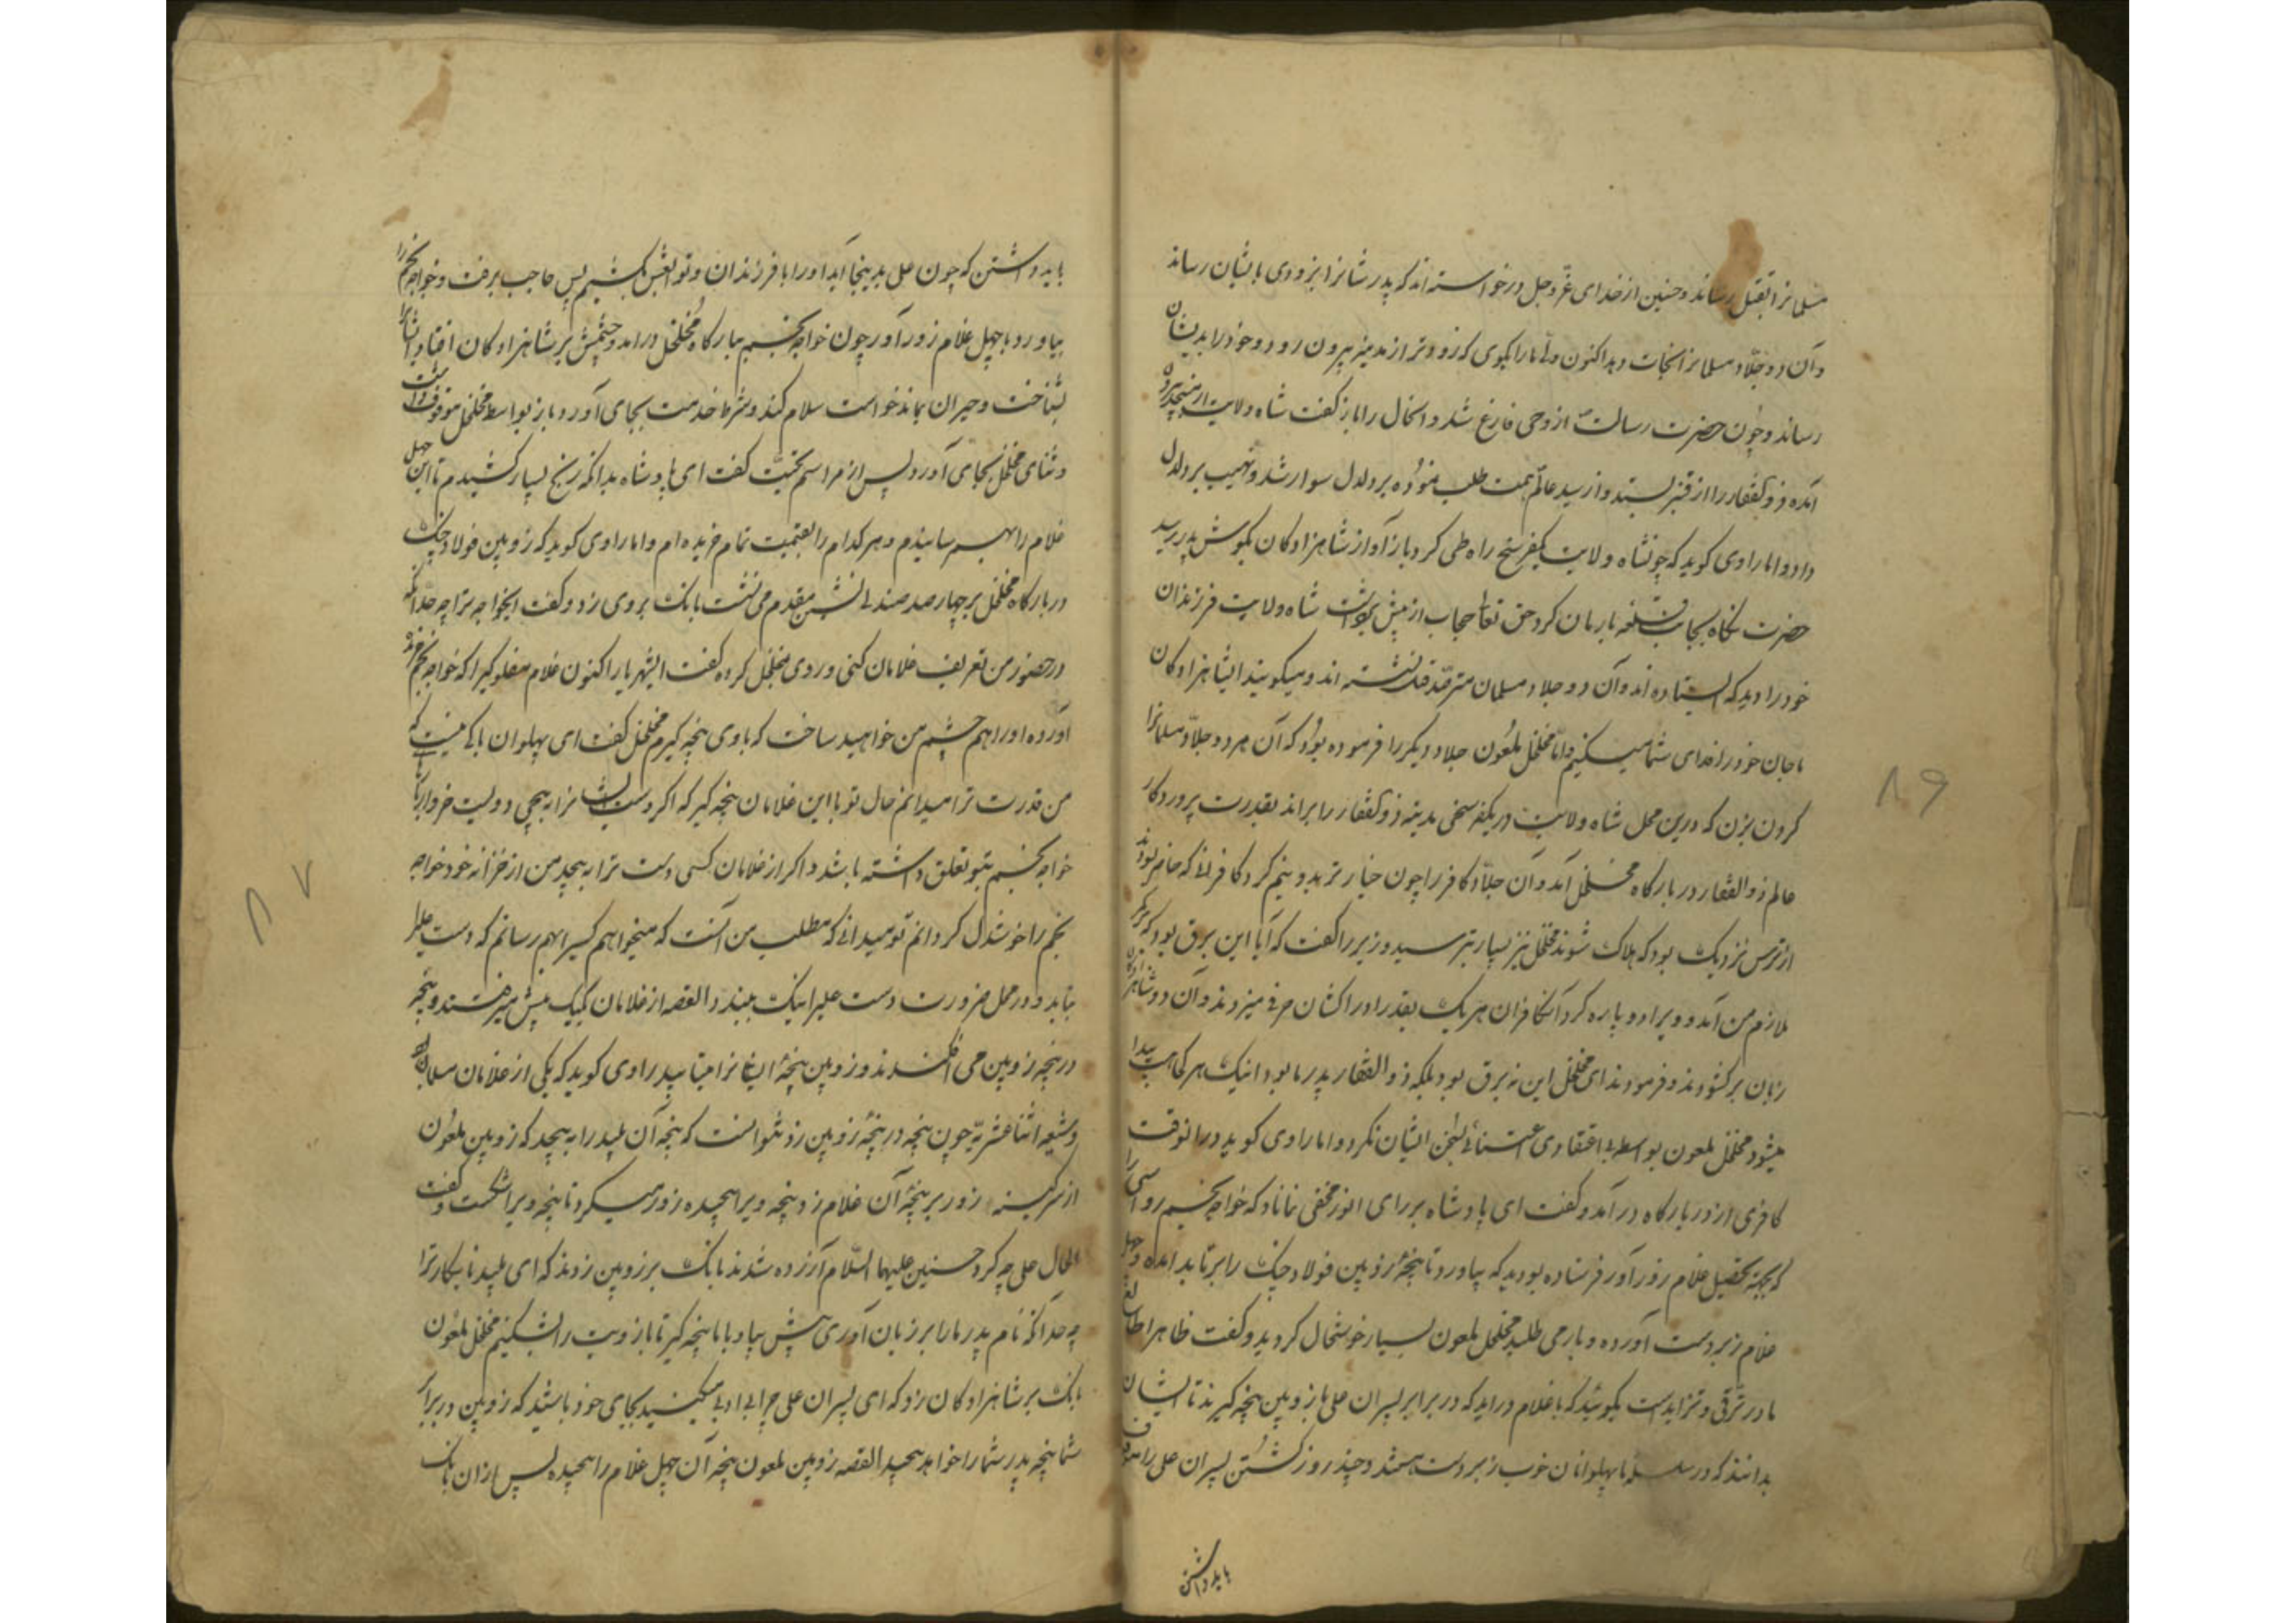 مسلمانرا بقتل رساند و حسنین از خدای عزّ و جل درخواسته اند که پدر شمانرا بزودی بایشان رساند
و آن دو جلّاد مسلمانرا نجات دهد اکنون ولی ما را بگوی که زودتر از مدینه بیرون رود و خود را بدیشان
رساند و چون حضرت رسالت از وحی فارغ شد و احال را باز گفت شاه ولایت از مسجد بیرون
آمده ذوالفقار را از قنبر بستد و از سید عالم همت طلب نموده بر دلدل سوار شد و نهیب بر دلدل
داد و اما راوی گوید که چونشاه ولایت یکفرسخ راه طی کرد باز آواز شاهزادگان بگوش پدر رسید
حضرت نگاه بجانب قلعه بارمان کرد حق تعالی حجاب از پیش برداشت شاه ولایت فرزندان
خود را دید که ایستاده اند و آن دو جلاد مسلمان مترصد قتل نشسته اند و میگویند ایشاهزادگان
ما جان خود را فدای شما میکنیم و اما مخلخل ملعون جلاد دیگر را فرموده بود که آن هر دو جلاد مسلمانرا
گردن بزن که درین محل شاه ولایت در یکفرسخی مدینه ذوالفقار را براند بقدرت پروردگار
عالم ذوالفقار در بارگاه مخلخل آمد و آن جلّاد کافر را چون خیار تر بدو نیم کرد کافران که حاضر بودند
از ترس نزدیک بود که هلاک شوند مخلخل نیز بسیار بترسید وزیر را گفت که آیا این برق بود که بر
ملازم من آمد و ویرا دو پاره کرد آنکافران هر یک بقدر ادراکشان حرفی میزدند و آن دو شاهزادگان
زبان برگشودند و فرمودند ای مخلخل این نه برق بود بلکه ذوالفقار پدر ما بود اینک هر کجا هست پیدا
میشود مخلخل ملعون بواسطه بی اعتقادی اعتنائی بسخن ایشان نکرد و اما راوی گوید در انوقت
کافری از در بارگاه در آمد و گفت ای پادشاه بر رای انور مخفی نماناد که خواجه نجم رواسی را
که بجهة تحصیل غلام زورآور فرستاده بودید که بیاورد تا پنجهٔ زوبین فولاد چنگ را برتابد آمده و چهل
غلام زبردست آورده و بار می طلبد مخلخل ملعون بسیار خوشحال گردید و گفت ظاهرا طالع
ما در ترقی و تزایدست بگوئید که با غلام دراید که در برابر پسران علی با زوبین پنجه گیرند تا ایشان
بدانند که در سلسلهٔ ما پهلوانان خوب زبردست هستند و چند روز کشتن پسران علی را موقوف
باید داشتن
۸۶
باید داشتن که چون علی بدینجا آید او را با فرزندان و تو بقتل کشیم پس حاجب برفت و خواجه نجم را
بیاورد با چهل غلام زورآور چون خواجه نجم ببارگاه مخلخل درامد و چشمش بر شاهزادگان افتاد ایشانرا
بشناخت و حیران بماند خواست سلام کند و شرط خدمت بجای آورد باز بواسطه مخلخل موقوف داشت
و ثنای مخلخل بجای آورد پس از مراسم تحیّت گفت ای پادشاه بدانکه رنج بسیار کشیدم تا این چهل
غلام را بهم رسانیدم و هر کدام را بقیمت تمام خریده ام و اما راوی گوید که زوبین فولاد چنگ
در بارگاه مخلخل بر چهار صد صندلی نشین مقدم می نشست بانک بروی زد و گفت ایخواجه ترا چه حد آنکه
در حضور من تعریف غلامان کنی و روی بمخلخل کرده گفت ایشهریار اکنون غلام مفلوکیرا که خواجه نجم
آورده او را هم چشم من خواهید ساخت که با وی پنجه گیرم مخلخل گفت ای پهلوان باکی نیست که
من قدرت ترا میدانم حال تو با این غلامان پنجه گیر که اگر دست ایشانرا به پیچی دویست خروار
خواجه نجم بتو تعلق داشته باشد و اگر از غلامان کسی دست ترا به پیچد من از خزانه خود خواجه
نجم را خوشدل گردانم تو میدانی که مطلب من آنست که میخواهم کسیرا بهم رسانم که دست علیرا
بتابد و در محل ضرورت دست علیرا نیک ببندد القصه از غلامان یکیک پیش میرفتند و پنجه
در پنجه زوبین می افکندند و زوبین پنجهٔ ایشانرا میتابید راوی گوید که یکی از غلامان مسلمان بود
و شیعه اثناعشریه چون پنجه در پنجهٔ زوبین زد نتوانست که پنجه آن پلید را به پیچد که زوبین ملعون
از سر کینه زور بر پنجهٔ آن غلام زد و پنجه ویرا پیچیده زور میکرد تا پنجه ویرا شکست و گفت
الحال علی چه کرد حسنین علیهما السّلام آزرده شدند بانک بر زوبین زدند که ای پلید نابکار ترا
چه حد آنکه نام پدر ما را بر زبان آوری پیش بیا و با ما پنجه گیر تا بازویت را بشکنیم مخلخل ملعون
بانک بر شاهزادگان زد که ای پسران علی چرا بی ادبی میکنید بجای خود باشید که زوبین در برابر
شما پنجه پدر شما را خواهد پیچید القصه زوبین ملعون پنجه آن چهل غلام را پیچیده پس از ان بانک
۸۷